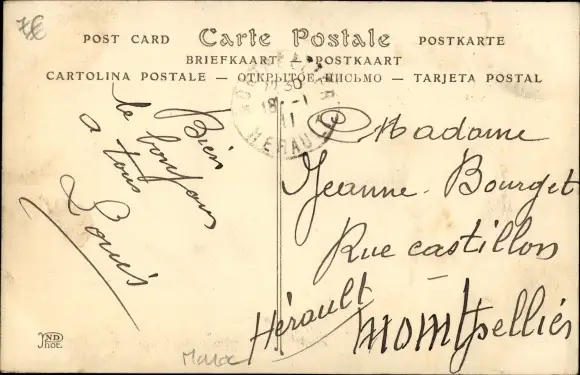 7€
POST CARD Carte Postale POSTKARTE
BRIEFKAART — POSTKAART
CARTOLINA POSTALE — ОТКРЫТОЕ ПИСЬМО — TARJETA POSTAL
18 -1
11
HERAULT
Bien
le bonjour
a tous
Louis
Madame
Jeanne Bourget
Rue castillon
Montpellier
Hérault
ND
Phot.
Maroc